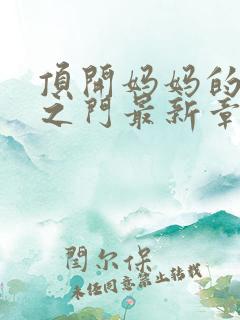 頂開妈妈的
之门最新章
閆尔保
未经同意禁止转载